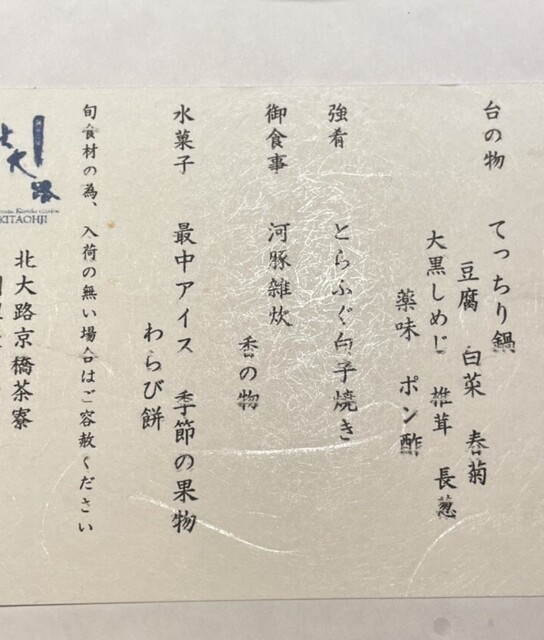 台の物　てっちり鍋
豆腐　白菜　春菊
大黒しめじ　椎茸　長葱
薬味　ポン酢
強肴　とらふぐ白子焼き
御食事　河豚雑炊
香の物
水菓子　最中アイス　季節の果物
わらび餅
旬食材の為、入荷の無い場合はご容赦ください
大路
KITAOHJI
北大路京橋茶寮